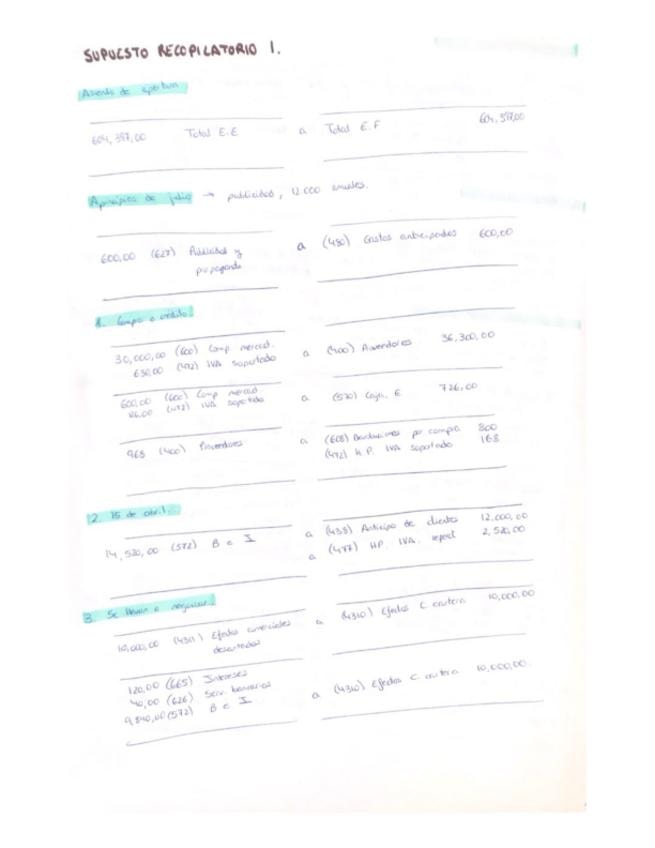 SUPUESTO RECOPILATORIO 1.
Asiento de apertura
604,397,00 Total E.E a Total E.F 604,397,00
A principios de julio → publicidad, 12.000 anuales.
600,00 (627) Publicidad y propaganda a (480) Gastos anticipados 600,00
1. Compra a crédito.
30,000,00 (600) Comp. mercad. a (400) Proveedores 36,300,00
6300,00 (472) IVA soportado
600,00 (600) Comp mercad. a (570) Caja, € 726,00
126,00 (472) IVA soportado
968 (400) Proveedores a (608) Devoluciones por compra 800
(472) H.P. IVA soportado 168
2. 15 de abril.
14,520,00 (572) B e I a (438) Anticipo de clientes 12,000,00
a (477) HP. IVA. reperc 2,520,00
3. Se llevan a negociar.
10,000,00 (4311) Efectos comerciales descontados a (4310) Efectos C. cartera 10,000,00
120,00 (665) Intereses
40,00 (626) Serv. bancarios
9,840,00 (572) B e I a (4310) Efectos C. cartera 10,000,00.